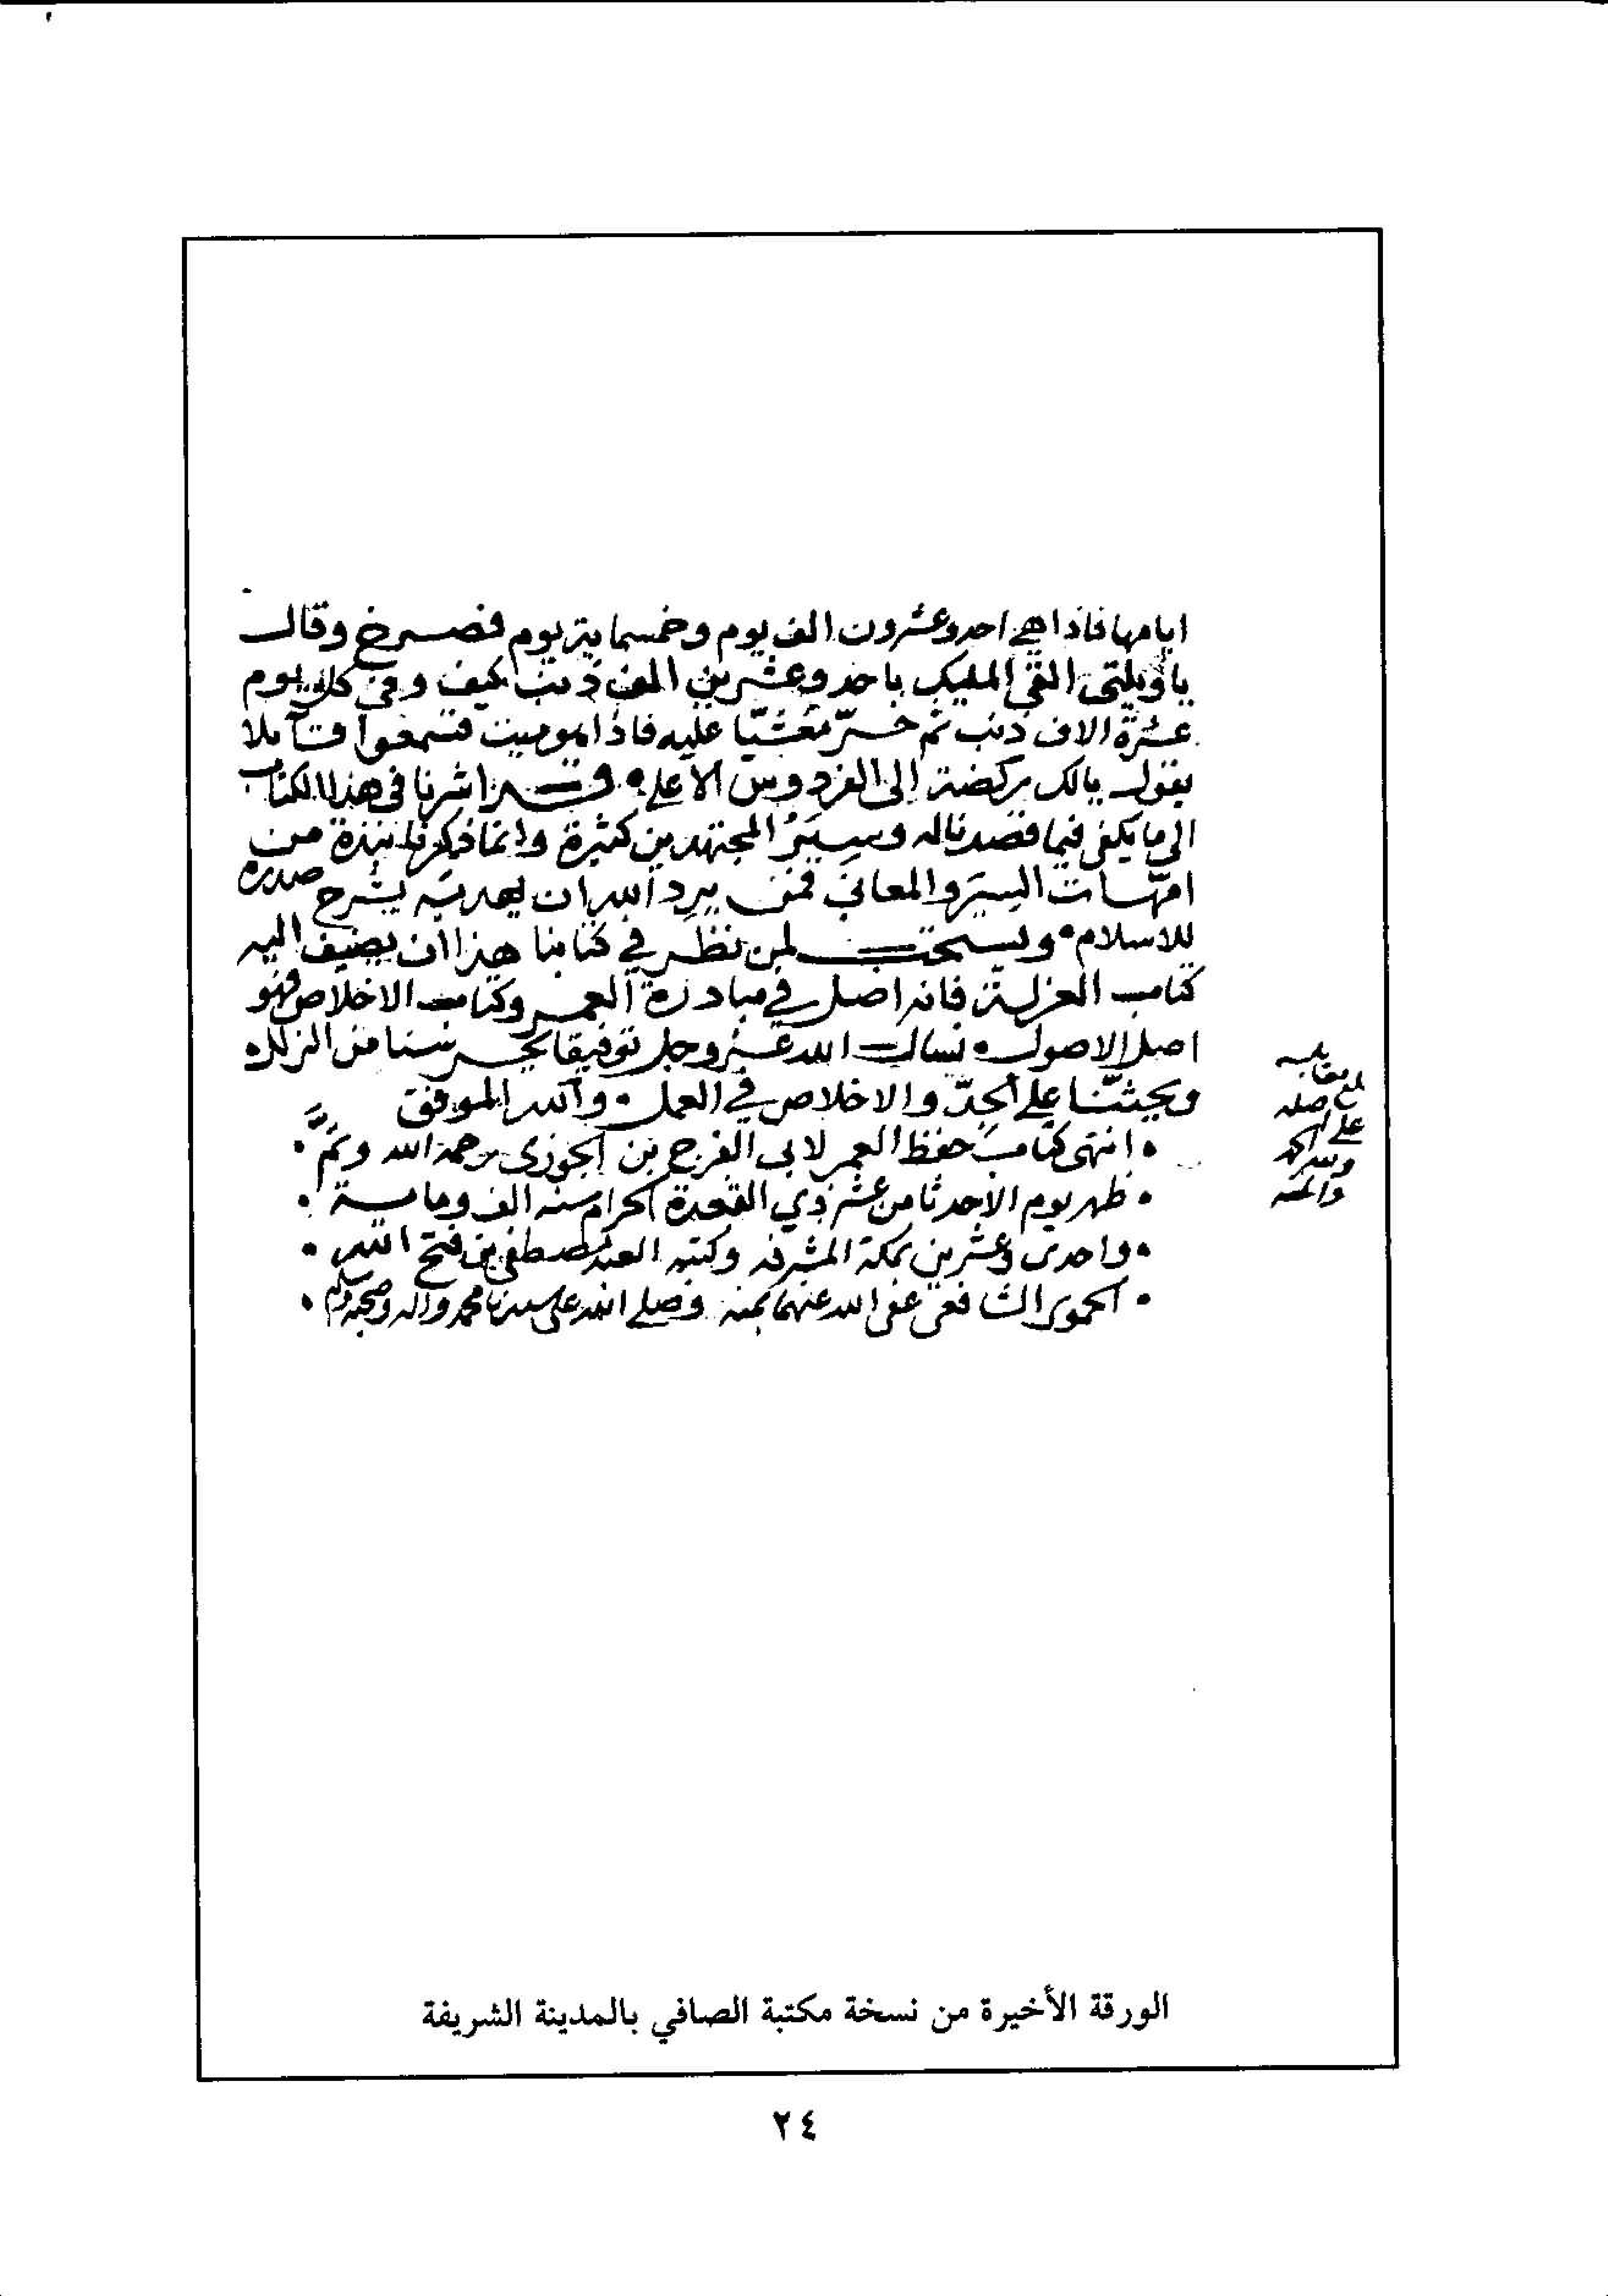 ايامها فاذا هي احد وعشرون الف يوم وخمسماية يوم فصرخ وقال
ياويلتي القي المليك باحد وعشرين الف ذنب كيف وفي كل يوم
عشرة الاف ذنب ثم خرّ مغشيّا عليه فاذا هو ميت فسمعوا قآيلا
يقول يالك ركضة إلى الفردوس الأعلي • وقد اشرنا في هذا الكتاب
الي ما يكفي فيما قصدنا له وسِيَرُ المجتهدين كثيرة وانما ذكرنا نبذة من
امّهات السِيَر والمعاني فمن يرد الله ان يهديه يشرح صدره
للاسلام • ويستحب لمن نظر في كتابنا هذا ان يضيف اليه
كتاب العزلة فانه اصل في مبادرة العمر وكتاب الاخلاص فهو
اصل الاصول • نسال الله عز وجل توفيقا يحرسنا من الزلل •
ويحثّنا علي الجدّ والاخلاص في العمل • والله الموفق
• انتهى كتاب حفظ العمر لابي الفرج بن الجوزي رحمه الله وتمَّ •
• ظهر يوم الاحد ثامن عشر ذي القعدة الحرام سنه الف وماية •
• واحدى وعشرين بمكة المشرفه وكتبه العبد مصطفى بن فتح الله •
• الحموي الشافعي عفى الله عنهما بمنه وصلي الله على سيدنا محمد واله وصحبه وسلم •
بلغ مقابله
علي اصله
ولله الحمد
والمنه
الورقة الأخيرة من نسخة مكتبة الصافي بالمدينة الشريفة
٢٤